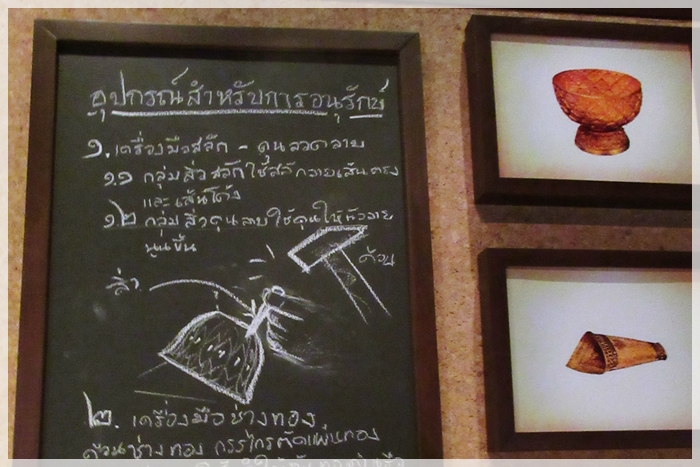 อุปกรณ์สำหรับการอนุรักษ์
๑. เครื่องมือสลัก - ดุนลวดลาย
๑.๑ กลุ่มสิ่วสลักใช้สลักลายเส้นตรง
และเส้นโค้ง
๑.๒ กลุ่มสิ่วดุนลายใช้ดุนให้ตัวลาย
นูนขึ้น
ค้อน
สิ่ว
๒. เครื่องมือช่างทอง
ค้อนช่างทอง กรรไกรตัดแผ่นทอง